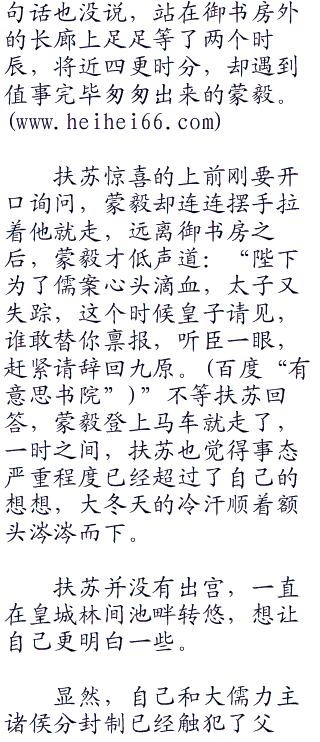 句话也没说，站在御书房外
的长廊上足足等了两个时
辰，将近四更时分，却遇到
值事完毕匆匆出来的蒙毅。
(www.heihei66.com)
扶苏惊喜的上前刚要开
口询问，蒙毅却连连摆手拉
着他就走，远离御书房之
后，蒙毅才低声道：“陛下
为了儒案心头滴血，太子又
失踪，这个时候皇子请见，
谁敢替你禀报，听臣一眼，
赶紧请辞回九原。(百度“有
意思书院”)”不等扶苏回
答，蒙毅登上马车就走了，
一时之间，扶苏也觉得事态
严重程度已经超过了自己的
想想，大冬天的冷汗顺着额
头涔涔而下。
扶苏并没有出宫，一直
在皇城林间池畔转悠，想让
自己更明白一些。
显然，自己和大儒力主
诸侯分封制已经触犯了父